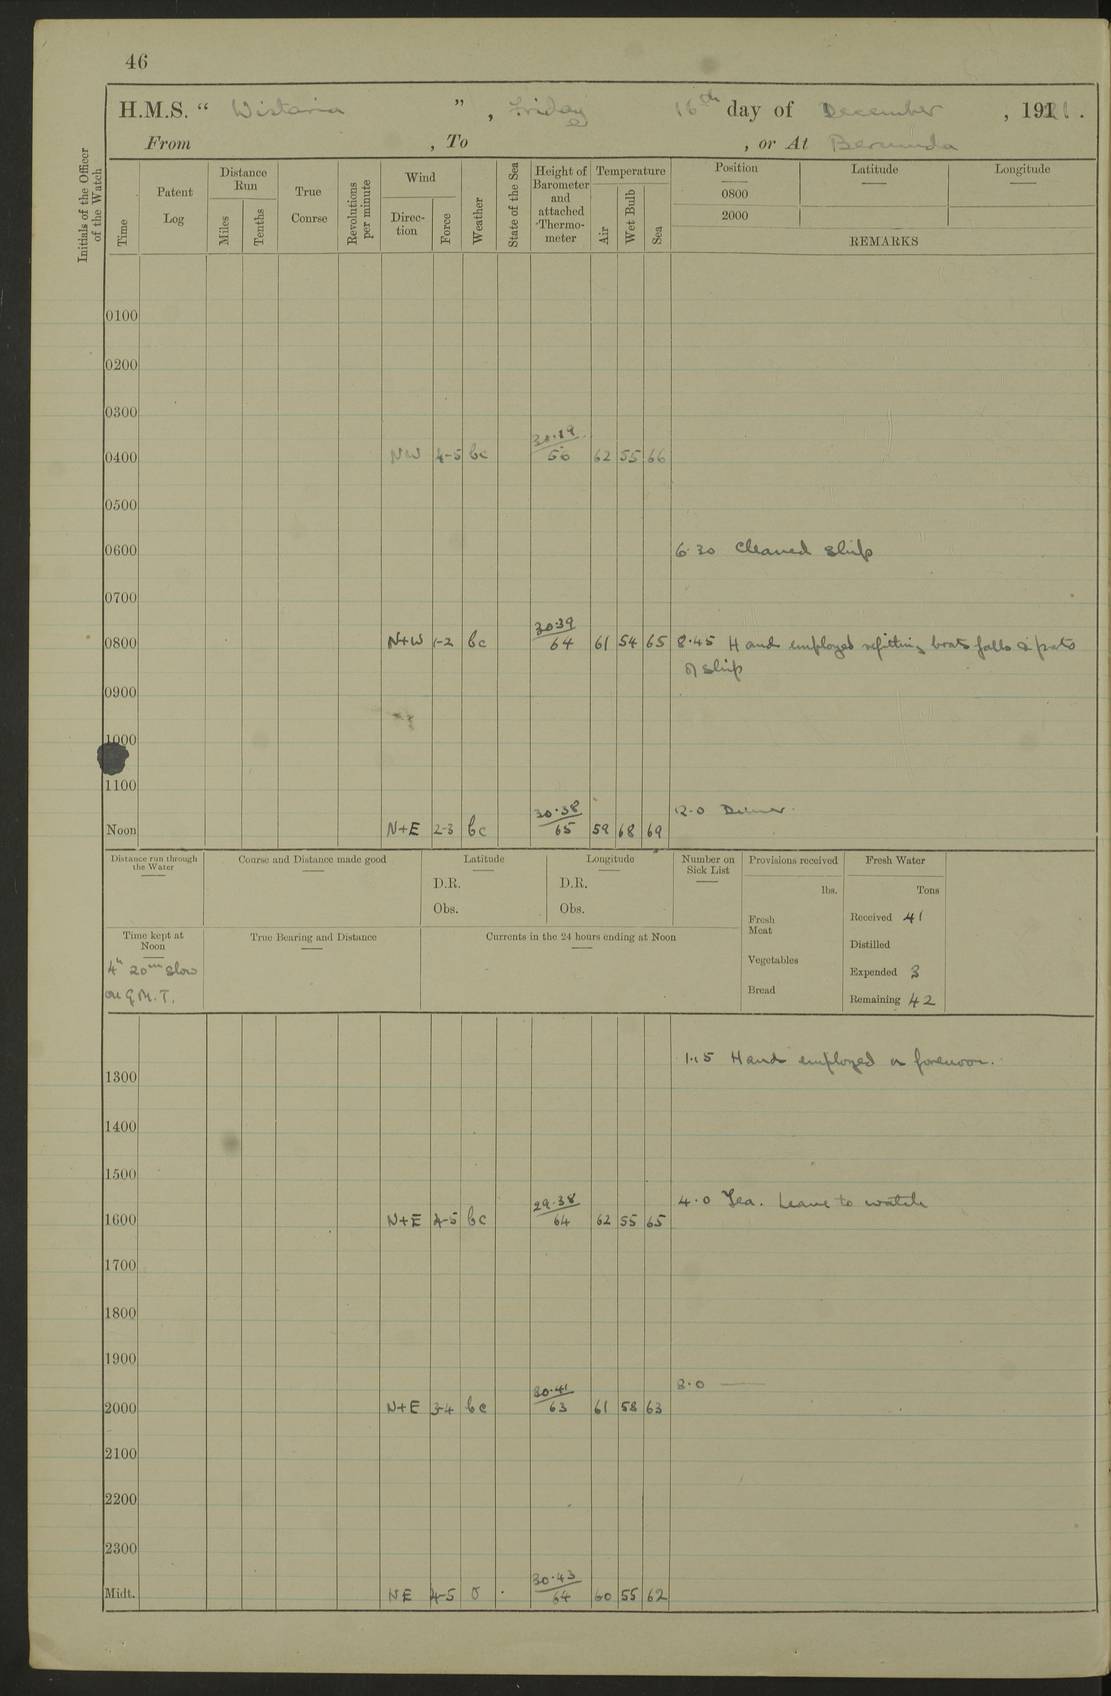 46
H.M.S. “ Wistaria ” , Friday 16th day of December , 1921 .
From , To , or At Bermuda
Initials of the Officer of the Watch
Time
Patent Log
Distance Run
Miles
Tenths
True Course
Revolutions per minute
Wind
Direc-tion
Force
Weather
State of the Sea
Height of Barometer and attached Thermo-meter
Temperature
Air
Wet Bulb
Sea
Position Latitude Longitude
0800
2000
REMARKS
0100
0200
0300
30.39
0400 NW 4-5 bc 56 62 55 66
0500
0600 6.30 Cleaned ship
0700
30.39
0800 N+W 1-2 bc 64 61 54 65 8.45 Hands employed refitting boats falls & parts
of ship
0900
1000
1100
30.38 12.0 Dinner.
Noon N+E 2-3 bc 65 59 68 69
Distance run through the Water
Course and Distance made good
Latitude
D.R.
Obs.
Longitude
D.R.
Obs.
Number on Sick List
Provisions received
lbs.
Fresh Meat
Vegetables
Bread
Fresh Water
Tons
Received 41
Distilled
Expended 3
Remaining 42
Time kept at Noon
4h 20m slow
on G.M.T.
True Bearing and Distance
Currents in the 24 hours ending at Noon
1.15 Hands employed as forenoon.
1300
1400
1500
29.38 4.0 Tea. Leave to watch
1600 N+E 4-5 bc 64 62 55 65
1700
1800
1900
30.41 8.0 —
2000 N+E 3-4 bc 63 61 58 63
2100
2200
2300
30.43
Midt. NE 4-5 o 64 60 55 62